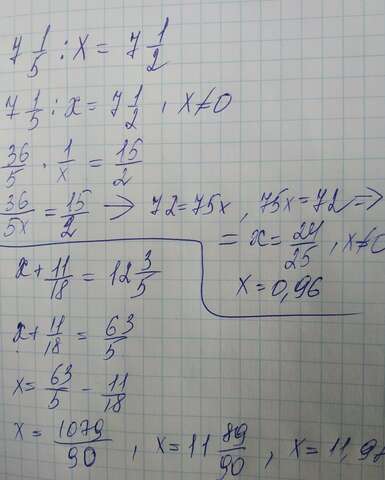 7 1/5 : x = 7 1/2
7 1/5 : x = 7 1/2 , x≠0
36/5 · 1/x = 15/2
36/5x = 15/2 → 72=75x , 75x=72 ⇒
= x = 24/25 , x≠0
x = 0,96
x + 11/18 = 12 3/5
x + 11/18 = 63/5
x = 63/5 - 11/18
x = 1079/90 , x = 11 89/90 , x = 11,98